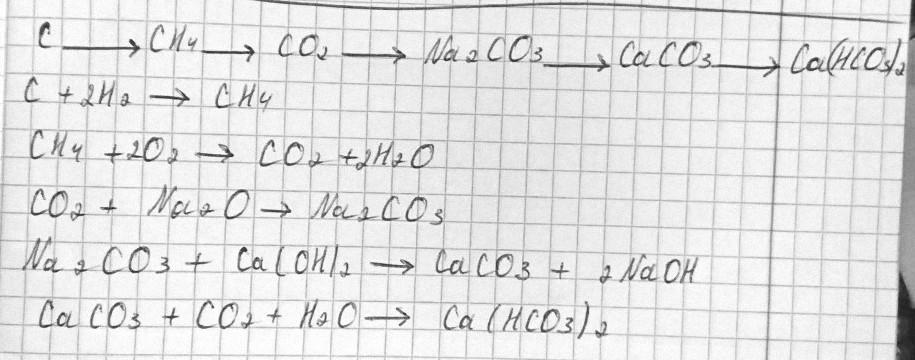 C → CH4 → CO2 → Na2CO3 → CaCO3 → Ca(HCO3)2
C + 2H2 → CH4
CH4 + 2O2 → CO2 + 2H2O
CO2 + Na2O → Na2CO3
Na2CO3 + Ca(OH)2 → CaCO3 + 2NaOH
CaCO3 + CO2 + H2O → Ca(HCO3)2